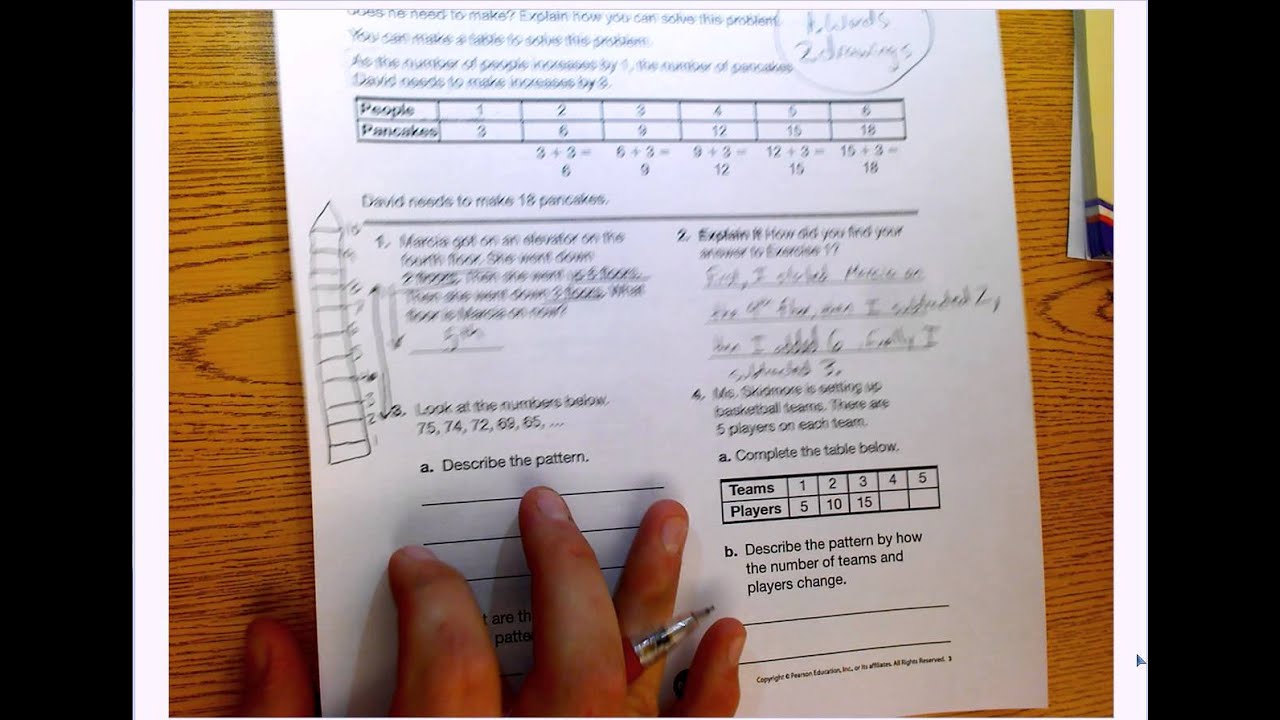 does he need to make? Explain how you can solve this problem.
You can make a table to solve this problem.
As the number of people increases by 1, the number of pancakes
David needs to make increases by 3.
1. Words
2 drawings
People 1 2 3 4 5 6
Pancakes 3 6 9 12 15 18
3 + 3 = 6 + 3 = 9 + 3 = 12 + 3 = 15 + 3 =
6 9 12 15 18
David needs to make 18 pancakes.
1. Marcia got on an elevator on the
fourth floor. She went down
2 floors. Then she went up 6 floors.
Then she went down 3 floors. What
floor is Marcia on now?
5th
2. Explain It How did you find your
answer to Exercise 1?
First, I started Marcia on
the 4th floor, then I subtracted 2,
then I added 6. Finally I
subtracted 3.
3. Look at the numbers below.
75, 74, 72, 69, 65, ...
a. Describe the pattern.
t are th
patte
4. Ms. Skidmore is setting up
basketball teams. There are
5 players on each team.
a. Complete the table below.
Teams 1 2 3 4 5
Players 5 10 15
b. Describe the pattern by how
the number of teams and
players change.
Copyright © Pearson Education, Inc., or its affiliates. All Rights Reserved. 3